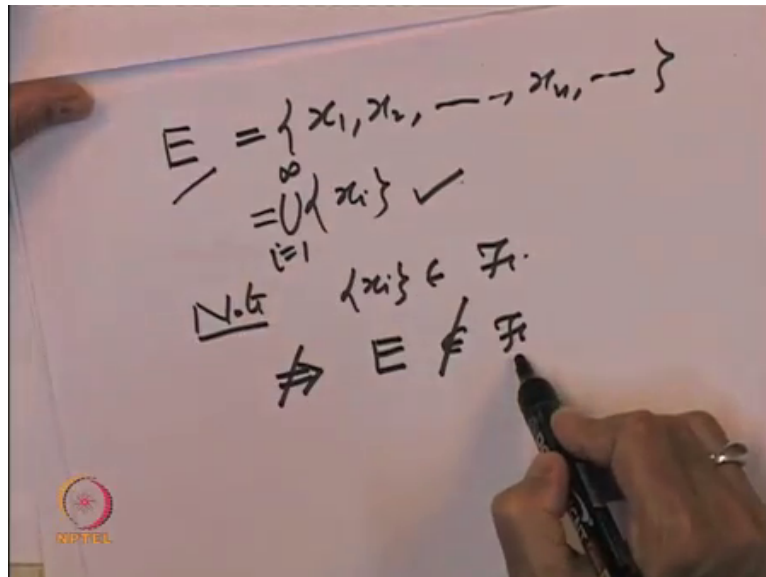 E = { x₁, x₂, —, xₙ, — }
= ∞ ∪ i=1 { xᵢ } ✓
N.G {xᵢ} ∈ ℱ.
⇏ E ∉ ℱ
NPTEL